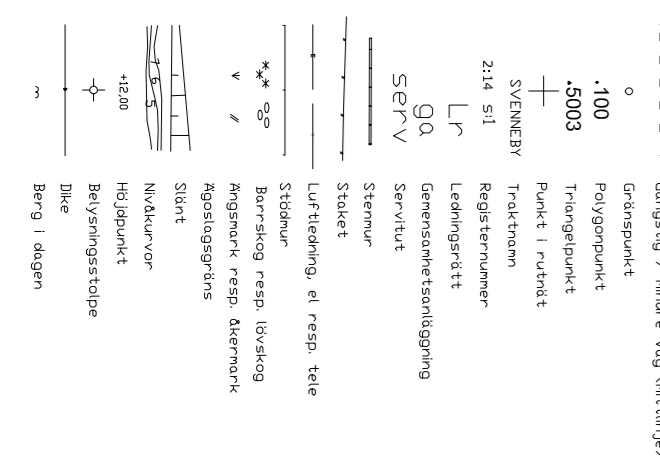 Gränspunkt
.100 Polygonpunkt
.5003 Triangelpunkt
Punkt i rutnät
SVENNEBY Traktnamn
2:14 s:1 Registernummer
Lr Ledningsrätt
ga Gemensamhetsanläggning
serv Servitut
Stenmur
Staket
Luftledning, el resp. tele
Stödmur
Barrskog resp. lövskog
Ängsmark resp. åkermark
Ägoslagsgräns
Slänt
7 6 5 Nivåkurvor
+12,00 Höjdpunkt
Belysningsstolpe
Dike
Berg i dagen